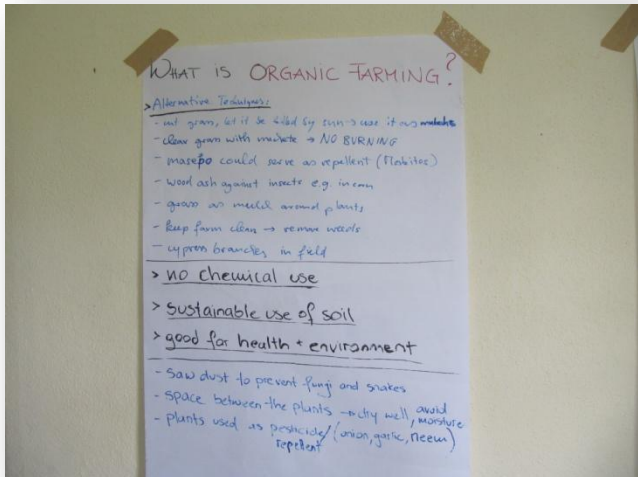 WHAT IS ORGANIC FARMING?
> Alternative Techniques:
- cut grass, let it be killed by sun → use it as
- clear grass with machete → NO BURNING
- masepo could serve as repellent (Mosbitos)
- wood ash against insects e.g. in corn
- grass as mulch around plants
- keep farm clean → remove weeds
- cypress branches in field
> no chemical use
> sustainable use of soil
> good for health + environment
- saw dust to prevent fungi and snakes
- space between the plants → dry well, avoid moisture
- plants used as pesticide/ (onion, garlic, neem)
repellent